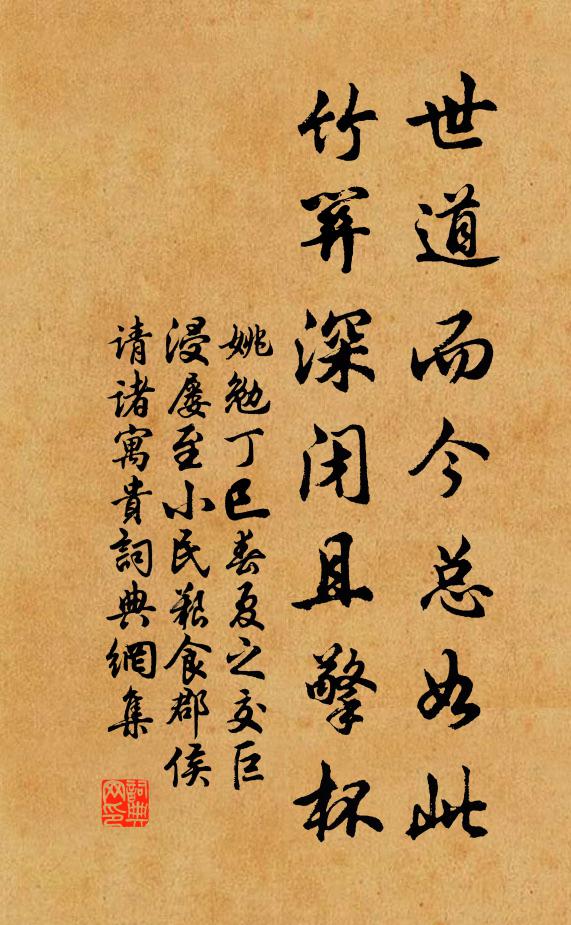 世道而今总如此
竹关深闭且擎杯
姚勉丁巳春夏之交巨
浸屡至小民艰食郡侯
请诸寓貴詞典網集
詞典网印